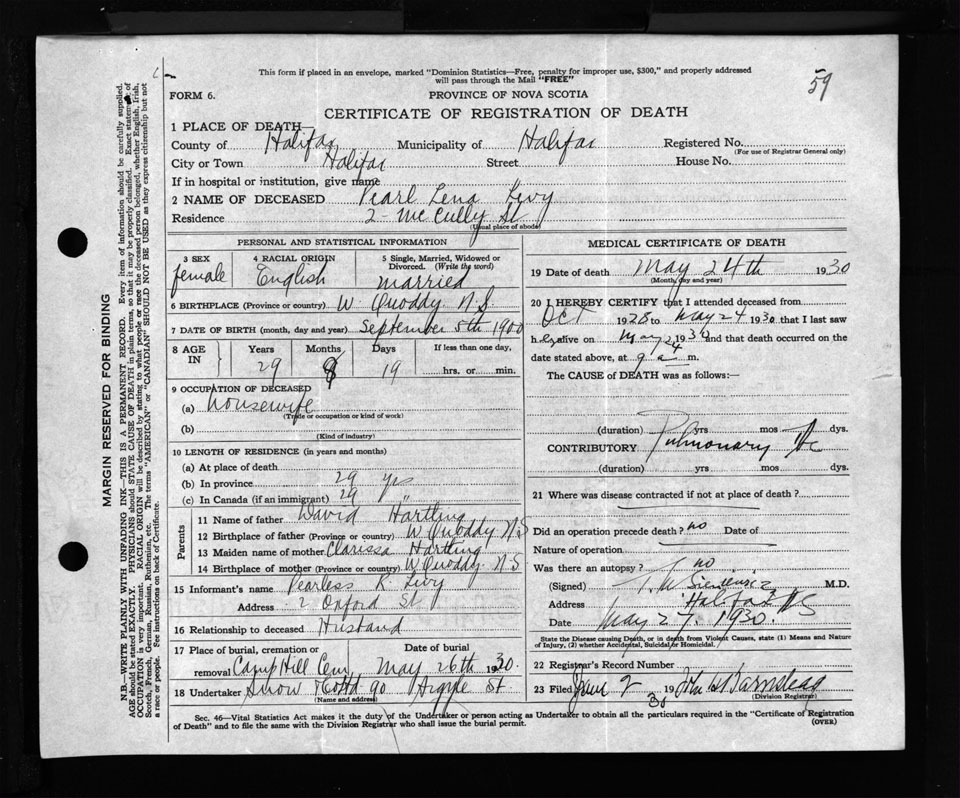 59
This form if placed in an envelope, marked "Dominion Statistics—Free, penalty for improper use, $300," and properly addressed
will pass through the Mail "FREE"
FORM 6.
PROVINCE OF NOVA SCOTIA
CERTIFICATE OF REGISTRATION OF DEATH
1 PLACE OF DEATH—
County of Halifax Municipality of Halifax Registered No.
(For use of Registrar General only)
City or Town Halifax Street House No.
If in hospital or institution, give name
2 NAME OF DECEASED Pearl Lena Levy
Residence 2 - McCully St
(Usual place of abode)
PERSONAL AND STATISTICAL INFORMATION
3 SEX female
4 RACIAL ORIGIN English
5 Single, Married, Widowed or Divorced. (Write the word) married
6 BIRTHPLACE (Province or country) W Quoddy N.S.
7 DATE OF BIRTH (month, day and year) September 5th 1900
8 AGE IN Years Months Days If less than one day,
29 8 19 hrs. or min.
9 OCCUPATION OF DECEASED
(a) housewife
(Trade or occupation or kind of work)
(b)
(Kind of industry)
10 LENGTH OF RESIDENCE (in years and months)
(a) At place of death
(b) In province 29 yrs
(c) In Canada (if an immigrant) 29 "
Parents
11 Name of father David Hartling
12 Birthplace of father (Province or country) W Quoddy N S
13 Maiden name of mother Clarissa Hartling
14 Birthplace of mother (Province or country) W Quoddy. N S
15 Informant's name Pearless R. Levy
Address 2 Oxford St
16 Relationship to deceased Husband
17 Place of burial, cremation or removal Camp Hill Cem Date of burial May 26th 1930.
18 Undertaker Snow & Co Ltd 90 Argyle St
(Name and address)
MEDICAL CERTIFICATE OF DEATH
19 Date of death May 24th 1930
(Month, day and year)
20 I HEREBY CERTIFY that I attended deceased from
Oct 1928 to May 24 1930 that I last saw
h er alive on May 24 1930 and that death occurred on the
date stated above, at 9 a m.
The CAUSE of DEATH was as follows:—
(duration) yrs mos dys.
CONTRIBUTORY Pulmonary
(duration) yrs mos dys.
21 Where was disease contracted if not at place of death?
Did an operation precede death? no Date of
Nature of operation
Was there an autopsy? no
(Signed) M.D.
Address Halifax NS
Date May 27, 1930.
State the Disease causing Death, or in death from Violent Causes, state (1) Means and Nature
of Injury, (2) whether Accidental, Suicidal or Homicidal.
22 Registrar's Record Number
23 Filed June 2 1930
(Division Registrar)
Sec. 46—Vital Statistics Act makes it the duty of the Undertaker or person acting as Undertaker to obtain all the particulars required in the "Certificate of Registration
of Death" and to file the same with the Division Registrar who shall issue the burial permit.
(OVER)
MARGIN RESERVED FOR BINDING
N.B.—WRITE PLAINLY WITH UNFADING INK—THIS IS A PERMANENT RECORD. Every item of information should be carefully supplied.
AGE should be stated EXACTLY. PHYSICIANS should STATE CAUSE OF DEATH in plain terms, so that it may be properly classified. Exact statement of
OCCUPATION is very important. RACIAL ORIGIN will be described by stating to what people or race the deceased person belonged, whether English, Irish,
Scotch, French, German, Russian, Ruthenian, etc. The terms "AMERICAN" or "CANADIAN" SHOULD NOT BE USED as they express citizenship but not
a race or people. Fee instructions on back of Certificate.